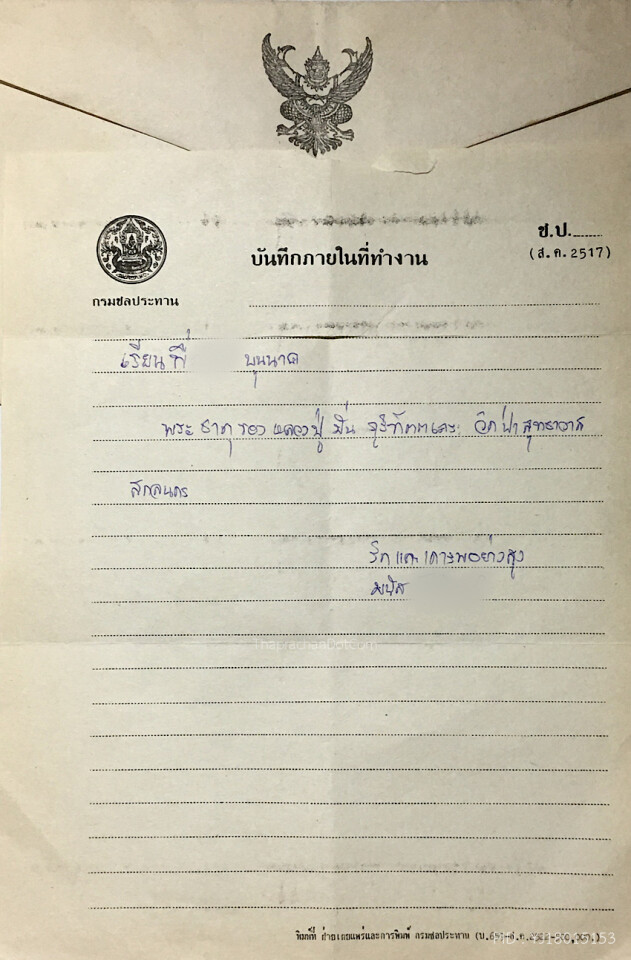 ช.ป.......
บันทึกภายในที่ทำงาน
(ส.ค. 2517)
กรมชลประทาน
เรียนพี่ บุนนาค
พระธาตุของหลวงปู่มั่น ภูริทัตตเถระ วัดป่าสุทธาวาส
สกลนคร
รักและเคารพอย่างสูง
มนัส
ThaprachanDotcom
พิมพ์ที่ ฝ่ายเผยแพร่และการพิมพ์ กรมชลประทาน